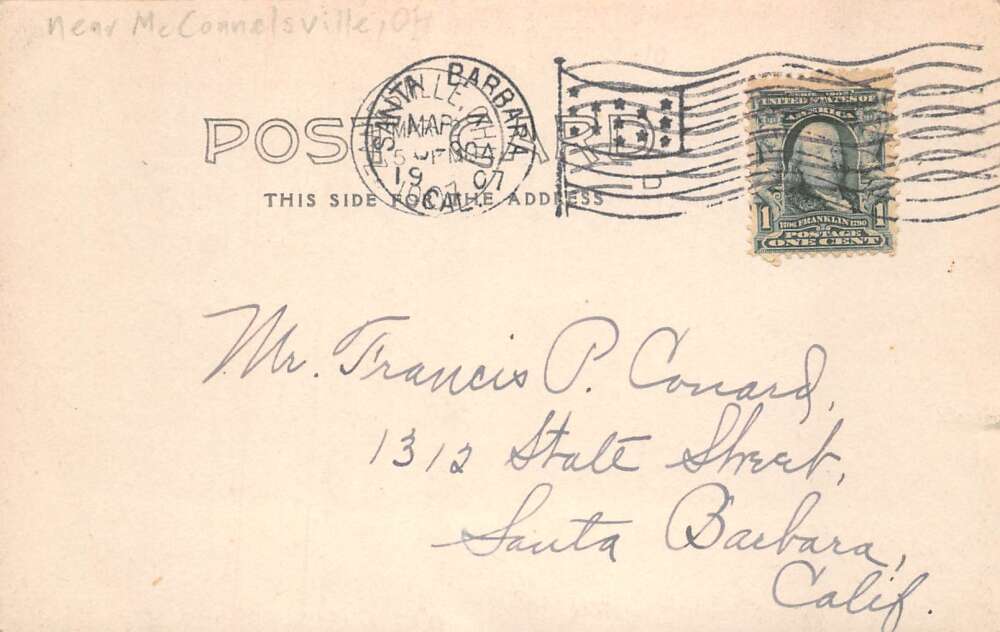 near McConnelsville, OH
SANTA BARBARA
MAR
19 07
CAL.
POST CARD
THIS SIDE FOR THE ADDRESS
UNITED STATES OF
AMERICA
1 1706 FRANKLIN 1790 1
POSTAGE
ONE CENT
Mr. Francis P. Conard,
1312 State Street,
Santa Barbara,
Calif.